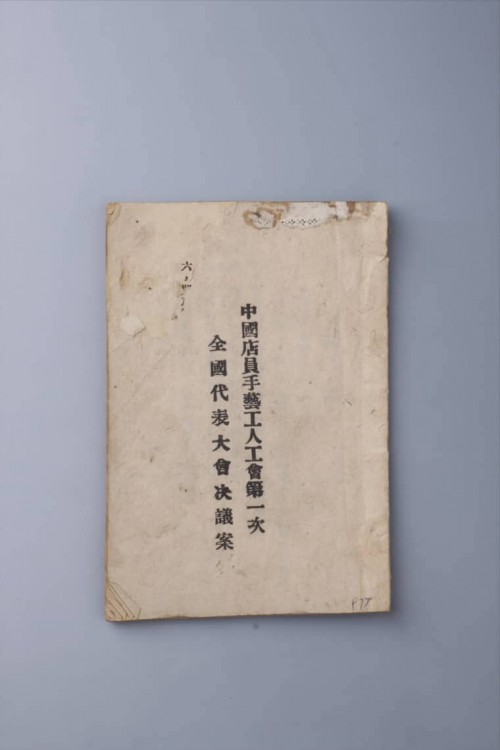 中國店員手藝工人工會第一次
全國代表大會決議案
六